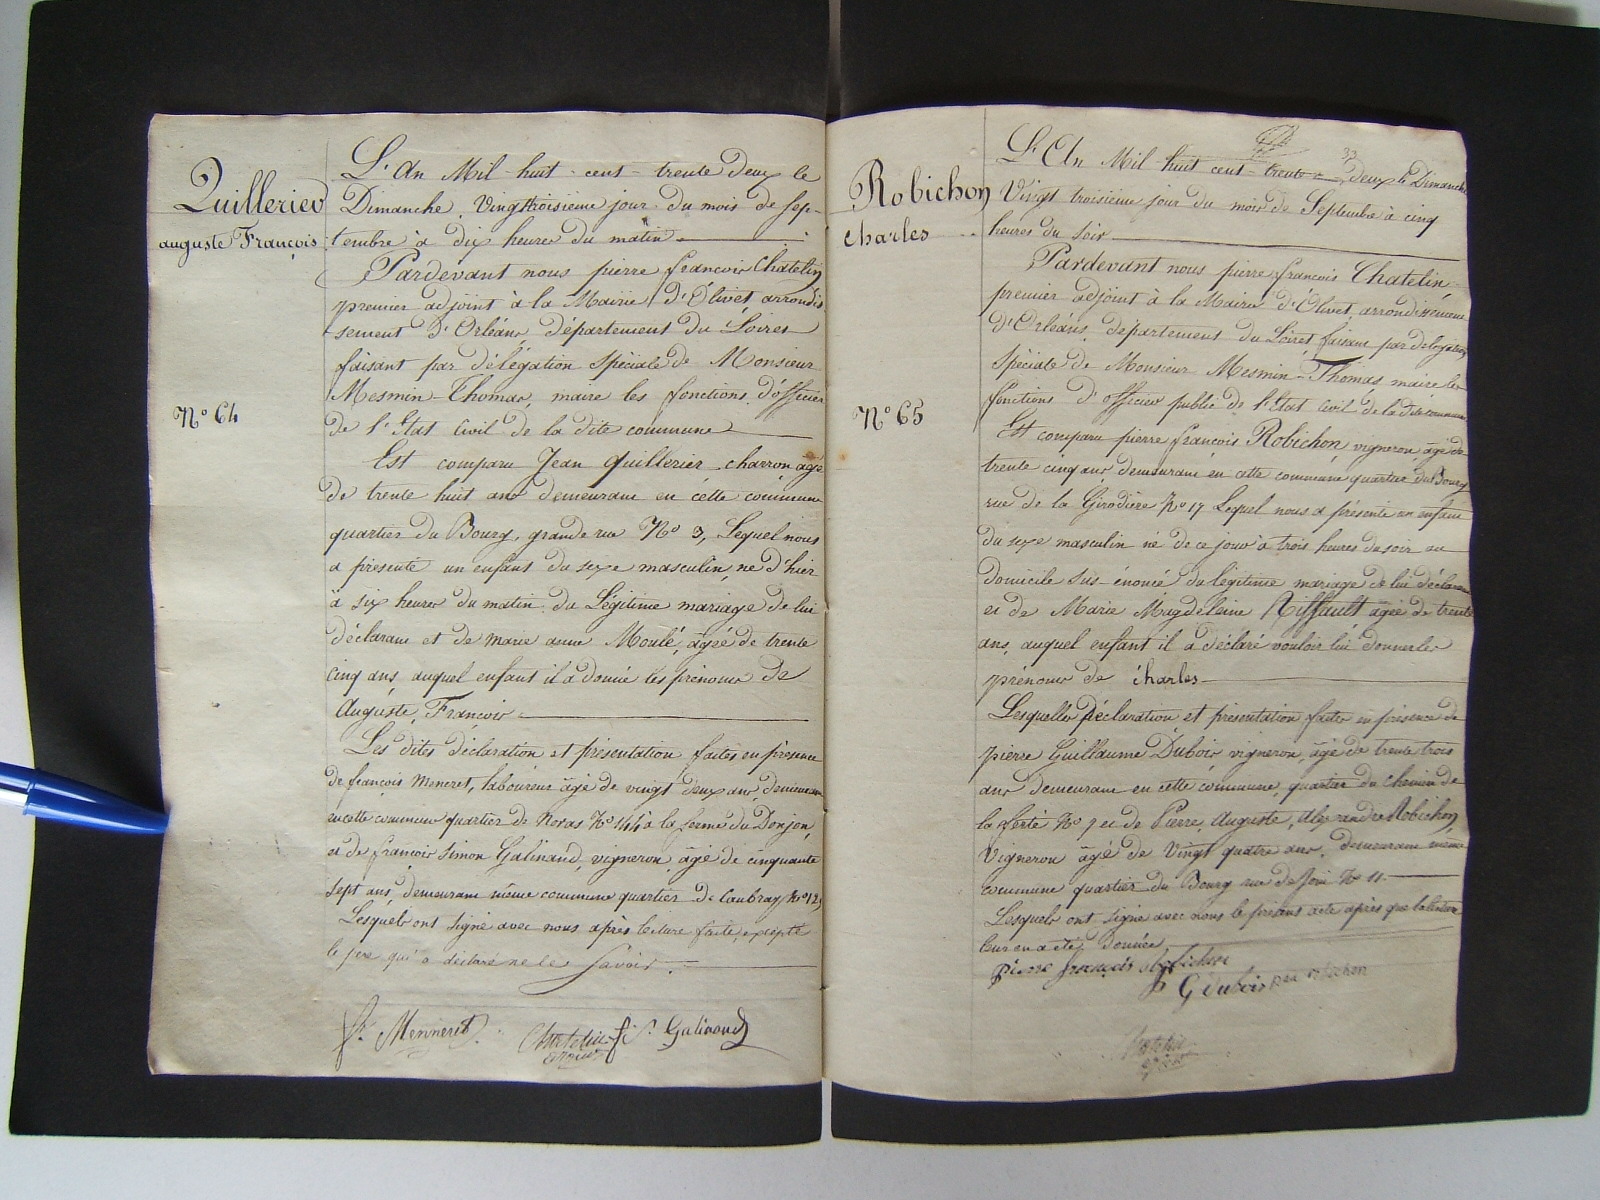 Quillerier
auguste François
N° 64
L'An Mil huit cent trente deux le
Dimanche, Vingttroisieme jour du mois de Sep-
tembre à dix heures du matin
Pardevant nous pierre françois Chatelin
premier adjoint à la Mairie d'Olivet arrondis
sement d'Orléans, département du Loiret
faisant par délégation Spéciale de Monsieur
Mesmin-Thomas, maire les fonctions d'officier
de l'État civil de la dite commune
Est comparu Jean Quillerier charron agé
de trente huit ans demeurant en cette commune
quartier du Bourg, grande rue N° 3, Lequel nous
a présenté un enfant du sexe masculin, né d'hier
à six heures du matin du Légitime mariage de lui
déclarant et de marie anne Moulé, agée de trente
cinq ans, auquel enfant il a donné les prénoms de
Auguste, François
Les dites déclaration et présentation faites en présence
de françois Meneret, laboureur âgé de vingt deux ans, demeurant
en cette commune quartier de Noras N° 144 à la ferme du Donjon,
et de françois Simon Galinaud, vigneron, âgé de cinquante
sept ans, demeurant même commune quartier de Caubray N° 12,
Lesquels ont signé avec nous après lecture faite, excepté
le pere qui a déclaré ne le savoir.
fs. Menneret Chatelin adjoint f. s. Galinaud
Robichon
charles
N° 65
33
L'An Mil huit cent trente deux le Dimanche
Vingt troisieme jour du mois de Septembre à cinq
heures du soir
Pardevant nous pierre françois Chatelin
premier adjoint à la Mairie d'Olivet, arrondissement
d'Orléans, département du Loiret, faisant par délégation
Spéciale de Monsieur Mesmin-Thomas, maire les
fonctions d'officier public de l'État civil de la dite commune
Est comparu pierre françois Robichon vigneron agé de
trente cinq ans demeurant en cette commune quartier du Bourg
rue de la Girodière N° 17 Lequel nous a présenté un enfant
du sexe masculin né de ce jour à trois heures du soir au
domicile sus-énoncé du légitime mariage de lui déclarant
et de Marie Magdeleine Riffault agée de trente
ans, auquel enfant il a déclaré vouloir lui donner les
prénoms de charles
Lesquelles déclaration et présentation faites en présence de
pierre Guillaume Dubois vigneron, âgé de trente trois
ans demeurant en cette commune, quartier du chemin de
la ferté N° 7 et de Pierre, Auguste, Alexandre Robichon,
Vigneron âgé de Vingt quatre ans, demeurant même
commune quartier du Bourg rue de N° 11.
Lesquels ont signé avec nous le présent acte après que lecture
leur en a été donnée
pierre françois robichon
P G dubois robichon
Chatelin
adjoint